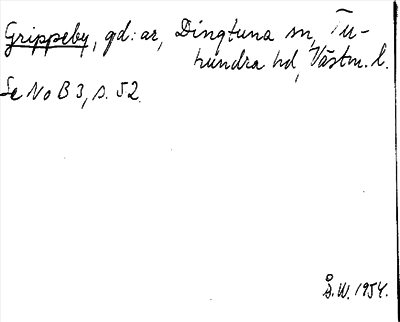 Grippeby, gd:ar, Dingtuna sn, Tu-
hundra hd, Västm. l.
Se No B 3, s. 52.
Å.W. 1954.